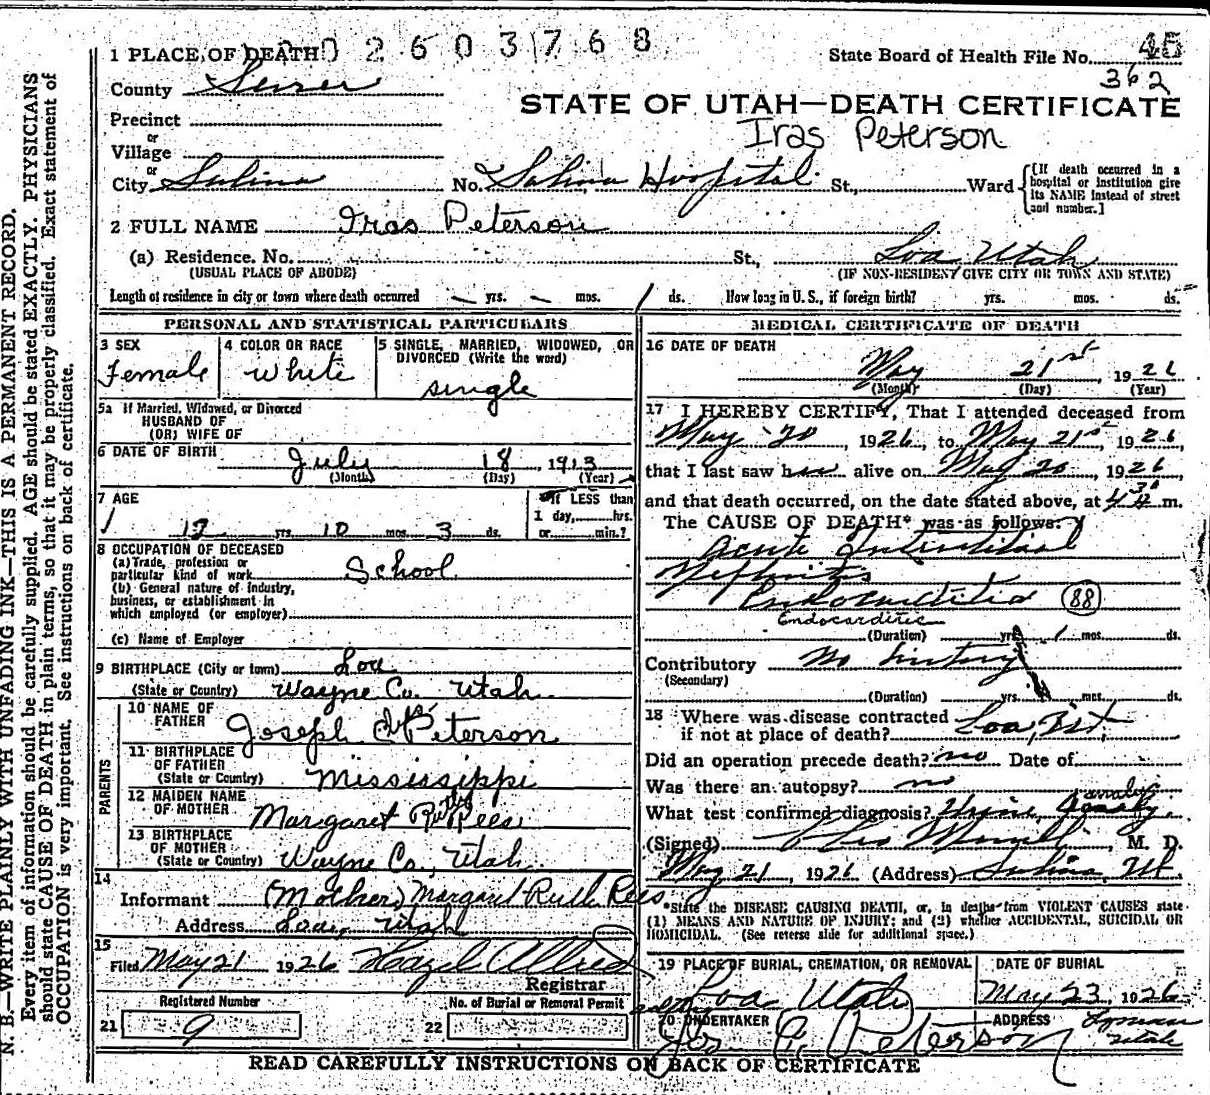 N. B.—WRITE PLAINLY WITH UNFADING INK—THIS IS A PERMANENT RECORD.
Every item of information should be carefully supplied. AGE should be stated EXACTLY. PHYSICIANS
should state CAUSE OF DEATH in plain terms, so that it may be properly classified. Exact statement of
OCCUPATION is very important. See instructions on back of certificate.
1 PLACE OF DEATH 02603768
State Board of Health File No. 45
362
County Sevier
STATE OF UTAH—DEATH CERTIFICATE
Precinct
Iras Peterson
or
Village
or
City Salina No. Salina Hospital St., Ward
{If death occurred in a hospital or institution give its NAME instead of street and number.]
2 FULL NAME Iras Peterson
(a) Residence. No. St., Loa Utah
(USUAL PLACE OF ABODE) (IF NON-RESIDENT GIVE CITY OR TOWN AND STATE)
Length of residence in city or town where death occurred — yrs. — mos. 1 ds. How long in U. S., if foreign birth? yrs. mos. ds.
PERSONAL AND STATISTICAL PARTICULARS
3 SEX
Female
4 COLOR OR RACE
White
5 SINGLE, MARRIED, WIDOWED, OR
DIVORCED (Write the word)
single
5a If Married, Widowed, or Divorced
HUSBAND OF
(OR) WIFE OF
6 DATE OF BIRTH July 18, 1913
(Month) (Day) (Year)
7 AGE
If LESS than
1 day, hrs.
12 yrs 10 mos 3 ds. or min.?
8 OCCUPATION OF DECEASED
(a) Trade, profession or
particular kind of work School
(b) General nature of industry,
business, or establishment in
which employed (or employer)
(c) Name of Employer
9 BIRTHPLACE (City or town) Loa
(State or Country) Wayne Co. Utah
PARENTS
10 NAME OF
FATHER Joseph Peterson
11 BIRTHPLACE
OF FATHER
(State or Country) Mississippi
12 MAIDEN NAME
OF MOTHER Margaret Ruth Rees
13 BIRTHPLACE
OF MOTHER
(State or Country) Wayne Co, Utah
14
Informant (Mother) Margaret Ruth Rees
Address Loa, Utah
15
Filed May 21 1926 Hazel Allred
Registrar
Registered Number
21 9
No. of Burial or Removal Permit
22
MEDICAL CERTIFICATE OF DEATH
16 DATE OF DEATH
May 21st, 1926
(Month) (Day) (Year)
17 I HEREBY CERTIFY, That I attended deceased from
May 20, 1926, to May 21st 1926,
that I last saw her alive on May 20, 1926,
and that death occurred, on the date stated above, at m.
The CAUSE OF DEATH* was as follows:
Acute Interstitial
Nephritis
Endocarditis (88)
Endocarditis
(Duration) yrs 1 mos. ds.
Contributory No history
(Secondary)
(Duration) yrs. mos. ds.
18 Where was disease contracted
if not at place of death? Loa, Ut
Did an operation precede death? no Date of
Was there an autopsy? no
analysis
What test confirmed diagnosis? Urine
(Signed) M. D.
May 21, 1926 (Address) Salina, Ut
*State the DISEASE CAUSING DEATH, or, in deaths from VIOLENT CAUSES state
(1) MEANS AND NATURE OF INJURY; and (2) whether ACCIDENTAL, SUICIDAL OR
HOMICIDAL. (See reverse side for additional space.)
19 PLACE OF BURIAL, CREMATION, OR REMOVAL
Loa Utah
DATE OF BURIAL
May 23, 1926
20 UNDERTAKER
Peterson
ADDRESS Lyman
Utah
READ CAREFULLY INSTRUCTIONS ON BACK OF CERTIFICATE